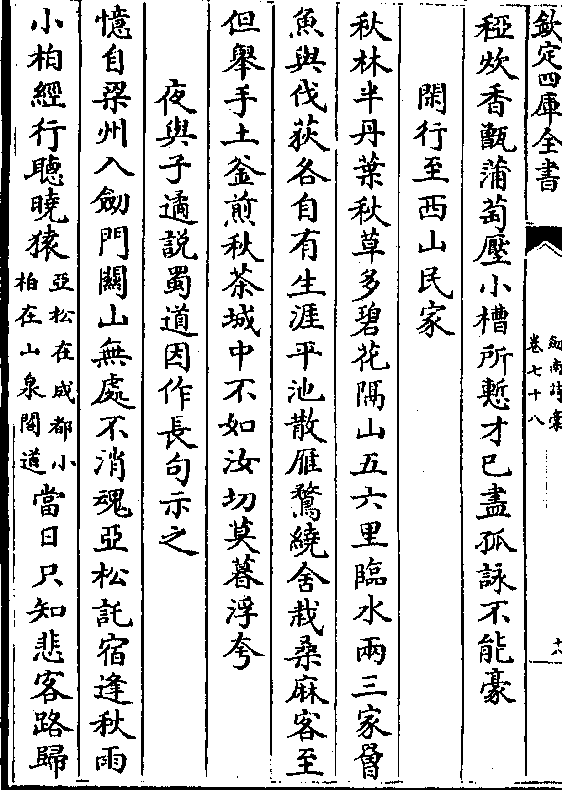 欽定四庫全書
劍南詩藁
卷七十八
十八
稏炊香甑蒲萄壓小槽所慙才已盡孤詠不能豪
閑行至西山民家
秋林半丹葉秋草多碧花隔山五六里臨水兩三家罾
魚與伐荻各自有生涯平池散雁鶩繞舍栽桑麻客至
但舉手土釜煎秋茶城中不如汝切莫暮浮夸
夜與子遹説蜀道因作長句示之
憶自梁州入劒門關山無處不消魂亞松託宿逢秋雨
小柏經行聽曉猿亞松在成都小柏在山泉閣道當日只知悲客路歸